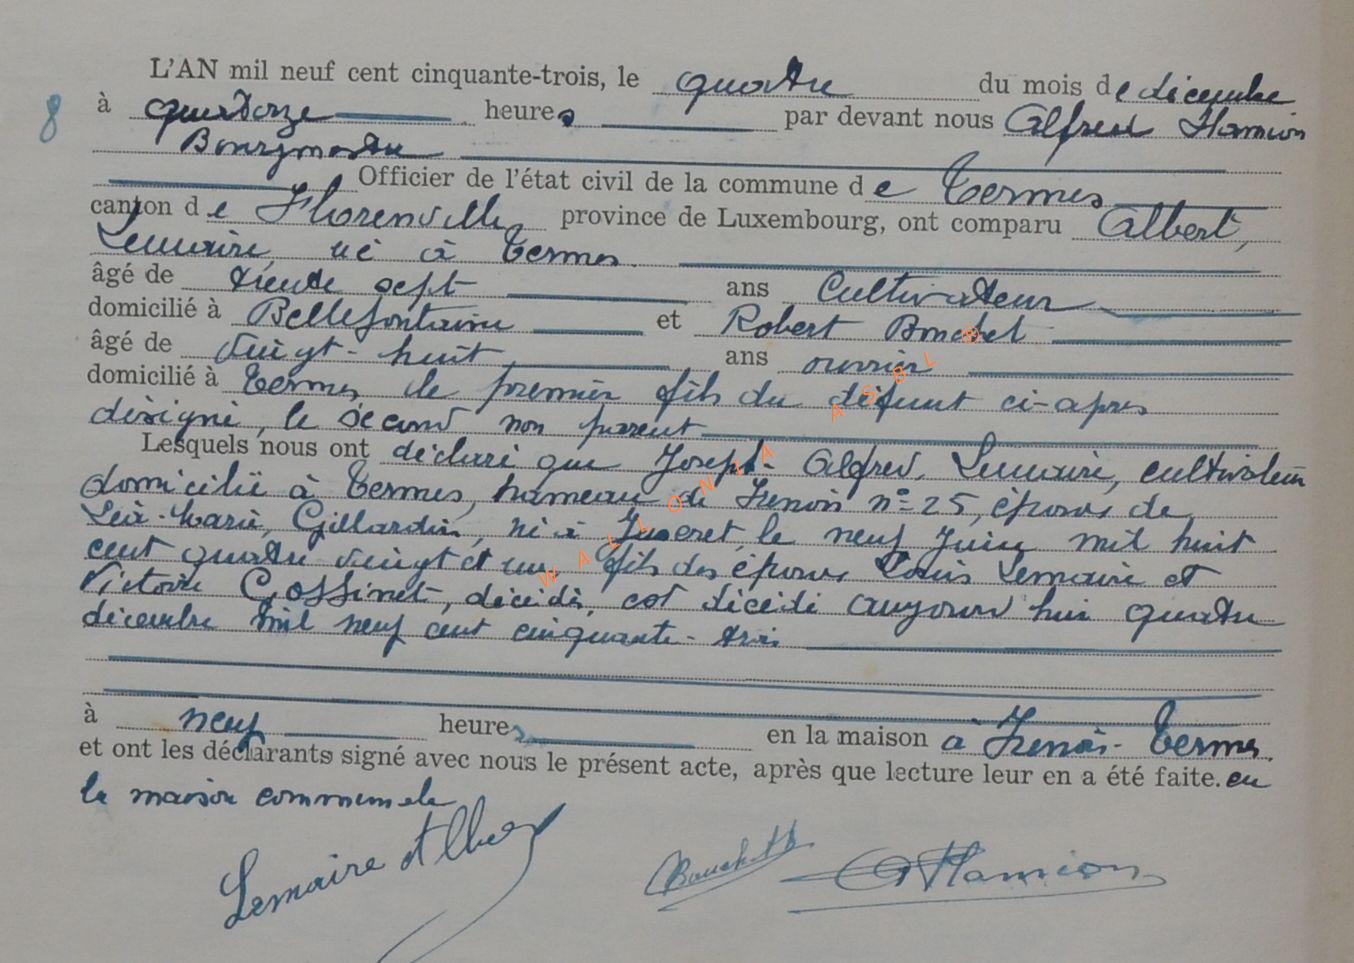 L'AN mil neuf cent cinquante-trois, le quatre du mois de décembre
8 à quatorze heures par devant nous Alfred Hamion
Bourgmestre
Officier de l'état civil de la commune de Termes
canton de Florenville province de Luxembourg, ont comparu Albert,
Lemaire, né à Termes
âgé de trente sept ans Cultivateur
domicilié à Bellefontaine et Robert
âgé de vingt-huit ans ouvrier
domicilié à Termes, le premier fils du défunt ci-après
désigné, le second non parent
Lesquels nous ont déclaré que Joseph-Alfred, Lemaire, cultivateur
domicilié à Termes, hameau de Frenois n° 25, époux de
Marie, Gillardin, né à le neuf Juin mil huit
cent quatre vingt et un fils des époux Louis Lemaire et
Victoire Gossinet, décédés, est décédé aujourd'hui quatre
décembre mil neuf cent cinquante-trois
à neuf heures en la maison à Frenois-Termes
et ont les déclarants signé avec nous le présent acte, après que lecture leur en a été faite. en
la maison communale
Lemaire Albert
AHamion
WALLONIA ASBL ®